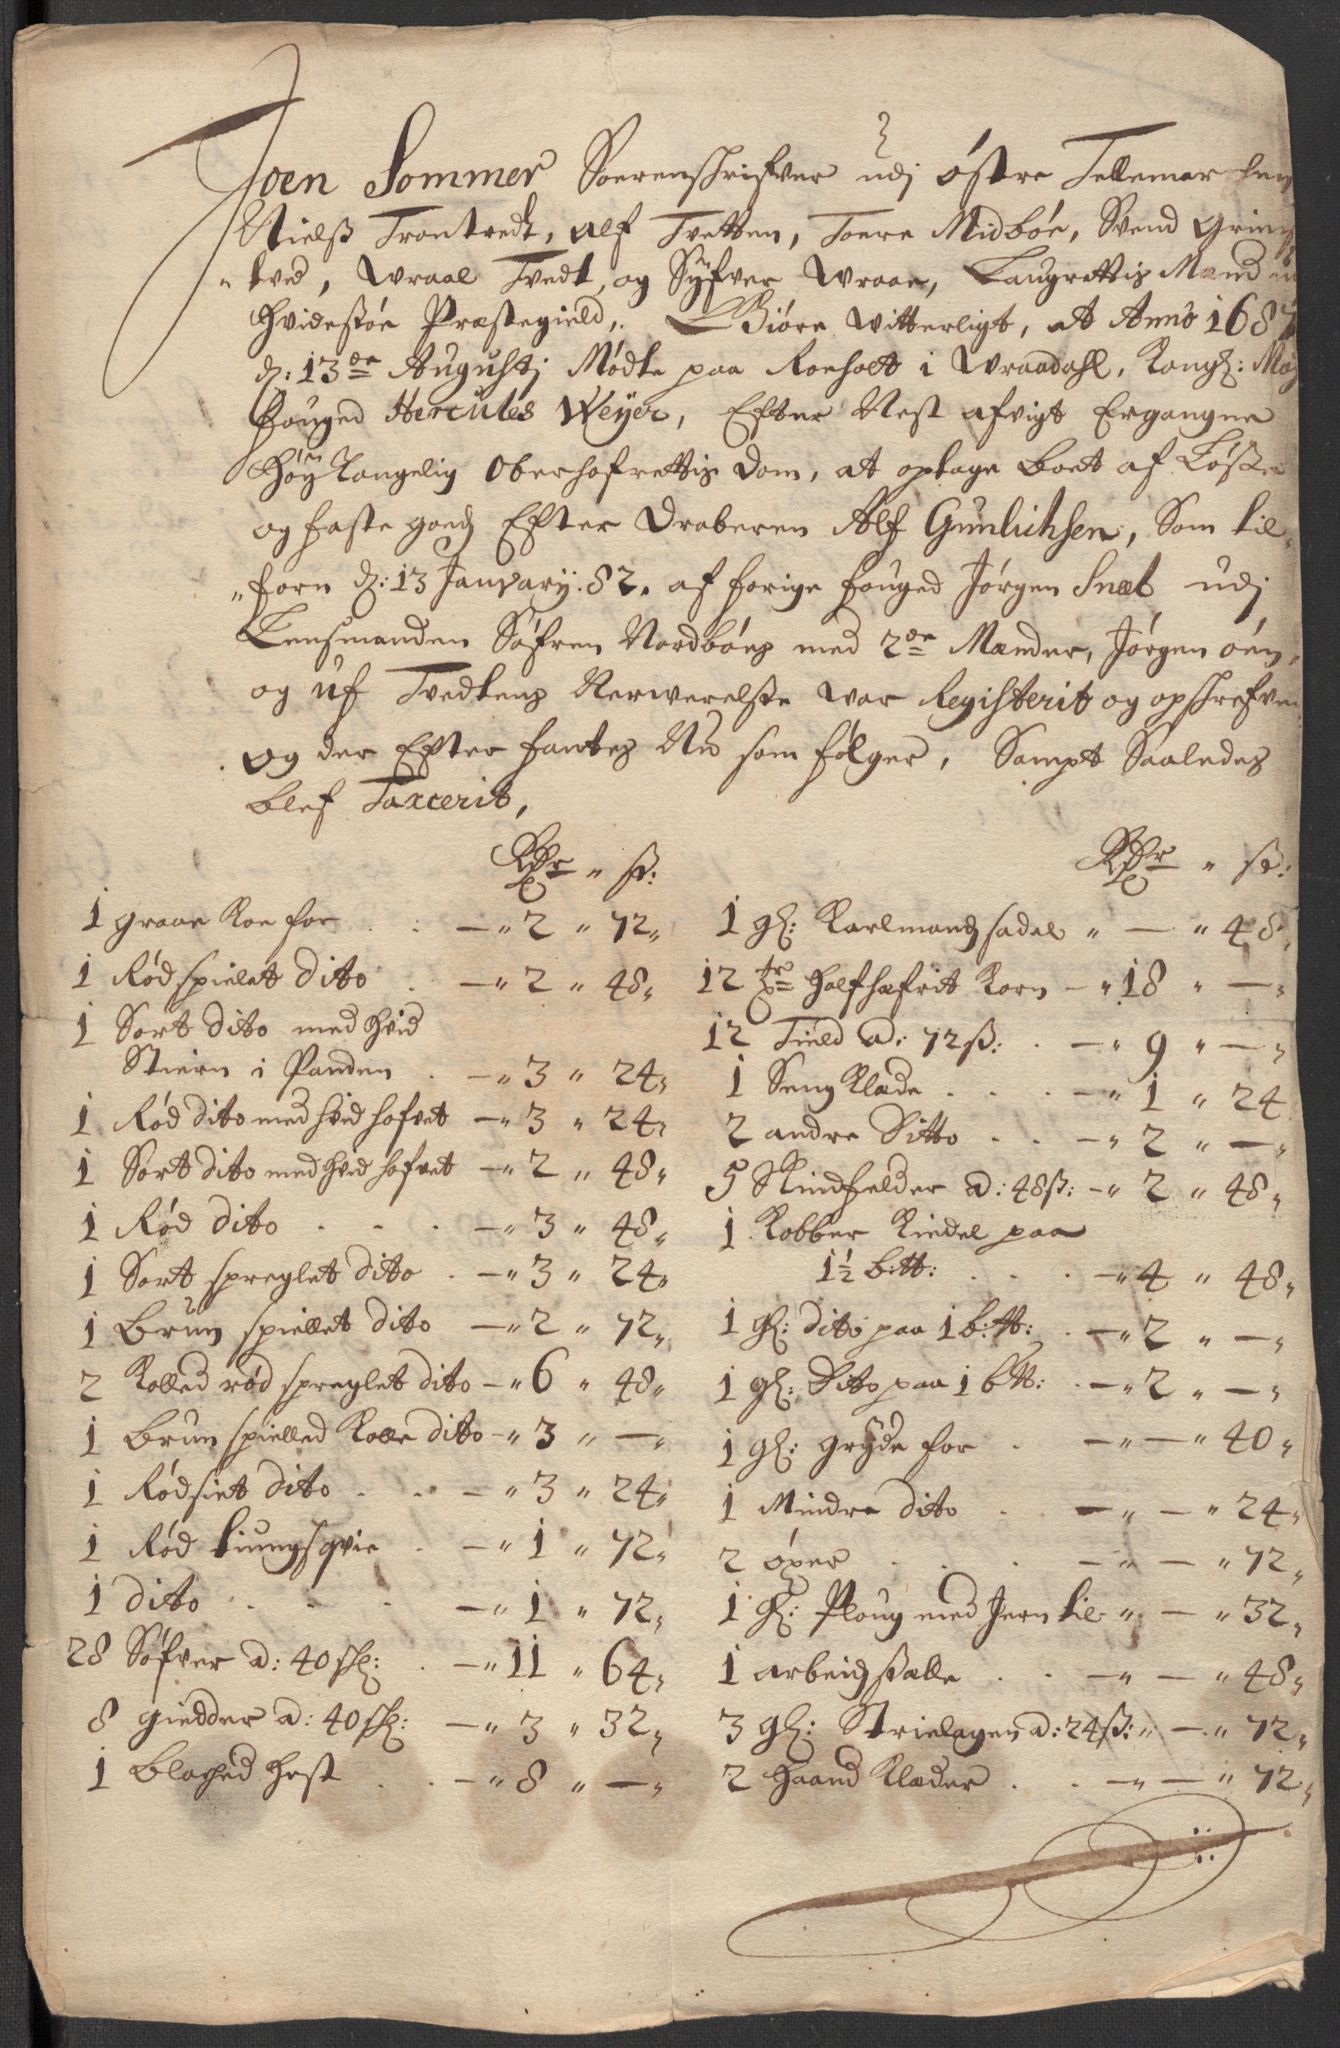 Joen Sommer Sorenschrifver udj östre Tellemarchen
Nielß Trontvedt, Alf Tvetten, Toere Midböe, Svend Grims
"tved, Wraal Tvedt, og Syfver Wraae, Laugrettis Mænd i
Hvidesöe Præstegield, Giöre Witterligt, at Anno 1687
d: 13de Augustj Mödte paa Roeholt i Wraadahl, Kongl: May
fouged Hercules Weyer, Efter Nest afvigt Ergangne
Höy Kongelig Oberhofrettis dom, at optage boet af Löse
og faste goedz Efter Draberen Alf Gunlichsen, Som til=
"forn d: 13 January: 82. af forige fouged Jörgen Snæl udj
Lensmanden Söfren Nordböes med 2de Mænder, Jörgen öen,
og Ulf Tvedtens Nerwerelße war Registerit og opschrefven
og der Efter fantes Nu som fölger, Sampt Saaledes
blef Taxcerit,
Rdr " ß:
1 graae Koe for . . — " 2 " 72"
1 Rödspielet dito . — " 2 " 48"
1 Sort dito med hvid
Stiern i Panden . — " 3 " 24"
1 Röd dito med hvid hofvet — " 3 " 24"
1 Sort dito med hvid hofvet — " 2 " 48"
1 Röd dito . . . — " 3 " 48"
1 Sort spreglet dito . — " 3 " 24"
1 Brun spiellet dito — " 2 " 72"
2 Kolled röd spreglet dito — " 6 " 48"
1 Brun spielled Kolle dito — " 3 " — "
1 Rödsiet dito . . — " 3 " 24"
1 Röd tiungs qvie . — " 1 " 72"
1 dito . . . — " 1 " 72"
28 Söfver a: 40 sk: . — " 11 " 64"
8 giedder a: 40 sk: — " 3 " 32"
1 blached Hest . . — " 8 " — "
Rdr " ß:
1 gl: Karlmandz sadel " — " 48"
12 tr halfhæfrit Korn — " 18 " — "
12 Tield a: 72ß: . — " 9 " — "
1 Seng Klæde . . . — " 1 " 24
2 andre Ditto . . — " 2 " — "
5 Skindfelder a: 48ß: — " 2 " 48"
1 Kobber Kiedel paa
1½ b:tt: . . . — " 4 " 48"
1 gl: dito paa 1 b:tt: . — " 2 " — "
1 gl: Dito paa 1 btt: . — " 2 " — "
1 gl: gryde for . — " — " 40"
1 Mindre dito . . — " — " 24"
2 öxer . . . — " — " 72"
1 gl: Ploug med Jern til " — " 32"
1 arbeidz sælle . . — " — " 48"
3 gl: Strielagen a: 24ß: " — " 72"
2 Haand Klæder . . — " — " 72"